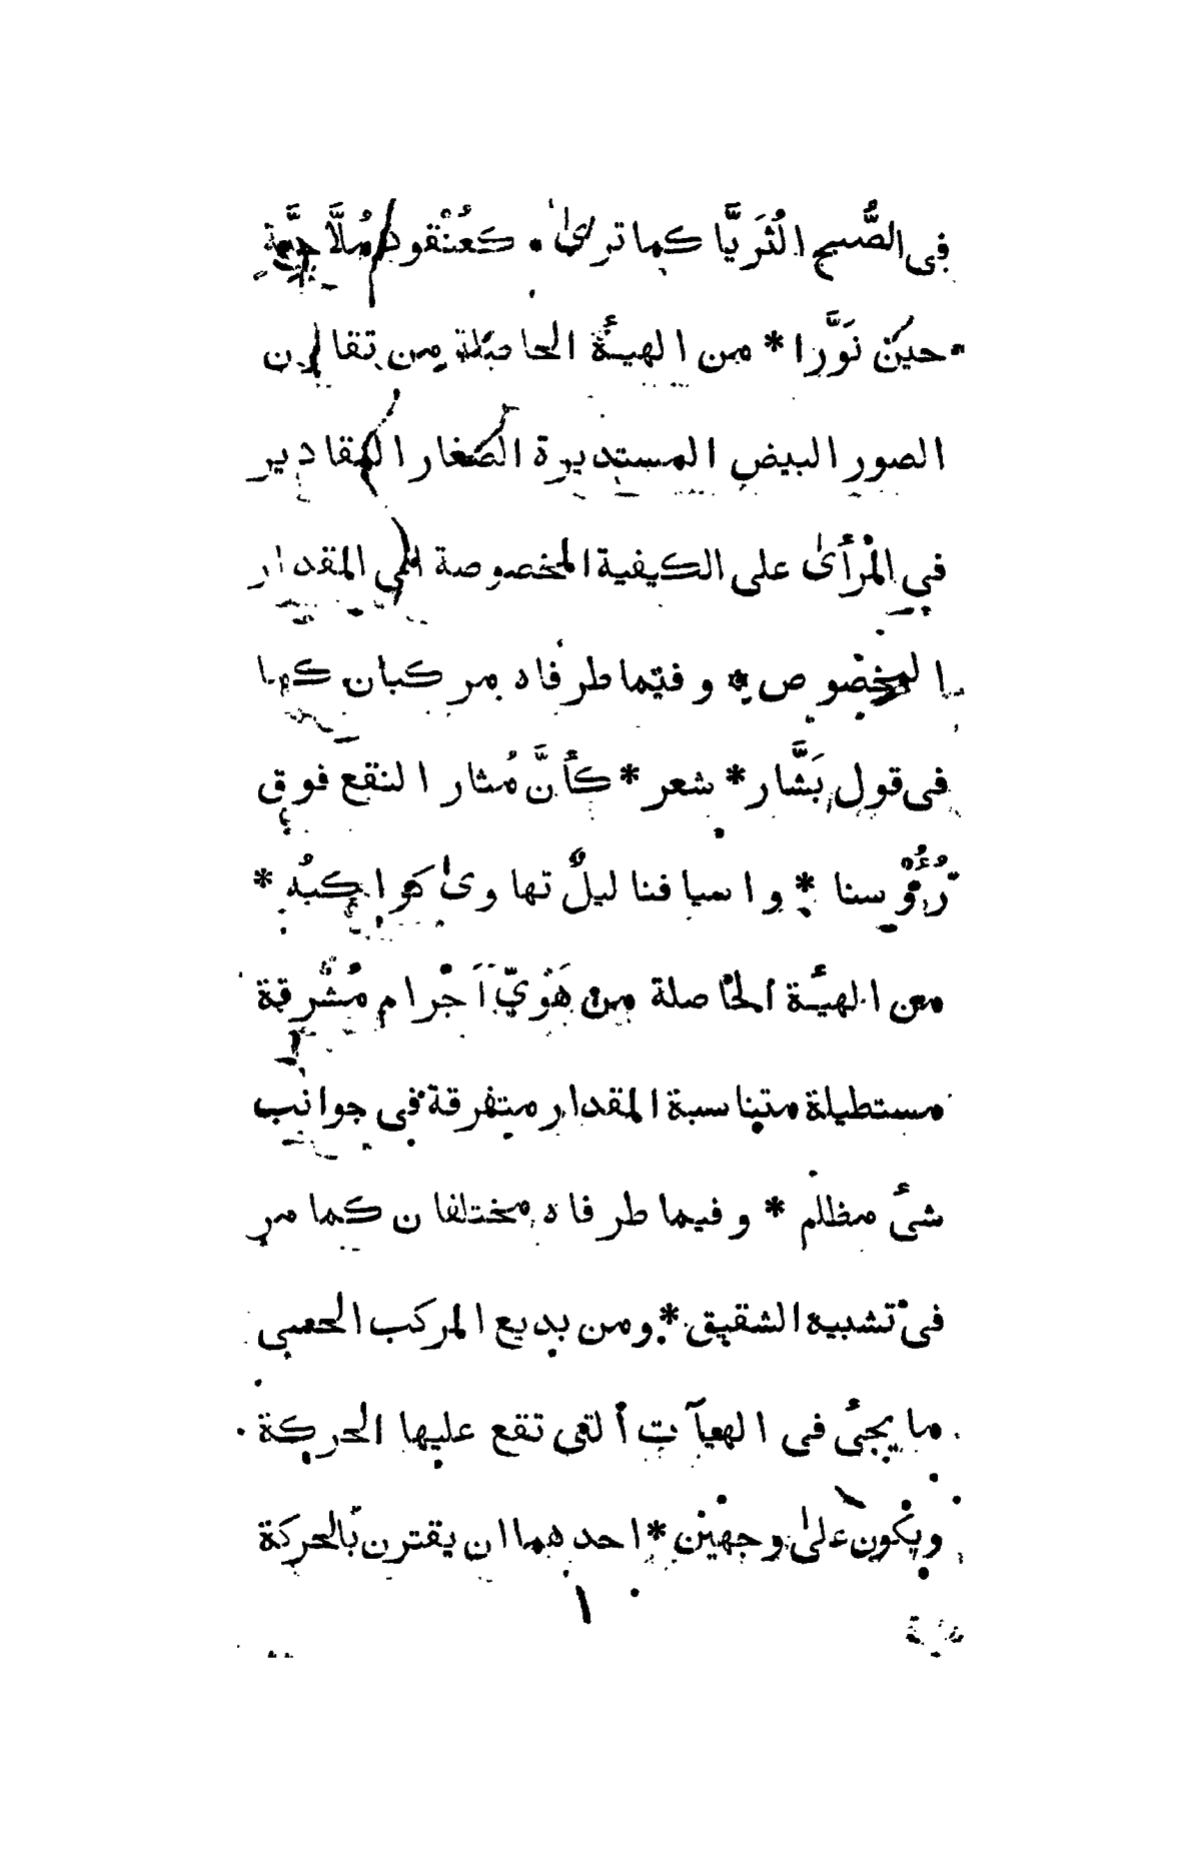 فى الصُّبح الثُرَيَّا كما ترىٰ • كعُنْقود مُلَّاحِيَّة
حين نَوَّرا * من الهيئة الحاصلة من تقارن
الصور البيض المستديرة الصغار المقادير
فى المْرأىٰ على الكيفية المخصوصة الى المقدار
المخصوص * وفيما طرفاه مركبان كما
فى قول بَشَّار * شعر * كأنَّ مُثار النقع فوق
رُؤُوسنا * واسيافنا ليلٌ تهاوىٰ كواكبُه *
من الهيئة الحاصلة من هَوِىّ اَجْرام مُشْرقة
مستطيلة متناسبة المقدار متفرقة فى جوانب
شئ مظلم * وفيما طرفاه مختلفان كما مر
فى تشبيه الشقيق * ومن بديع المركب الحسى
ما يجئ فى الهيآت التى تقع عليها الحركة
ويكون علىٰ وجهين * احدهما ان يقترن بالحركة